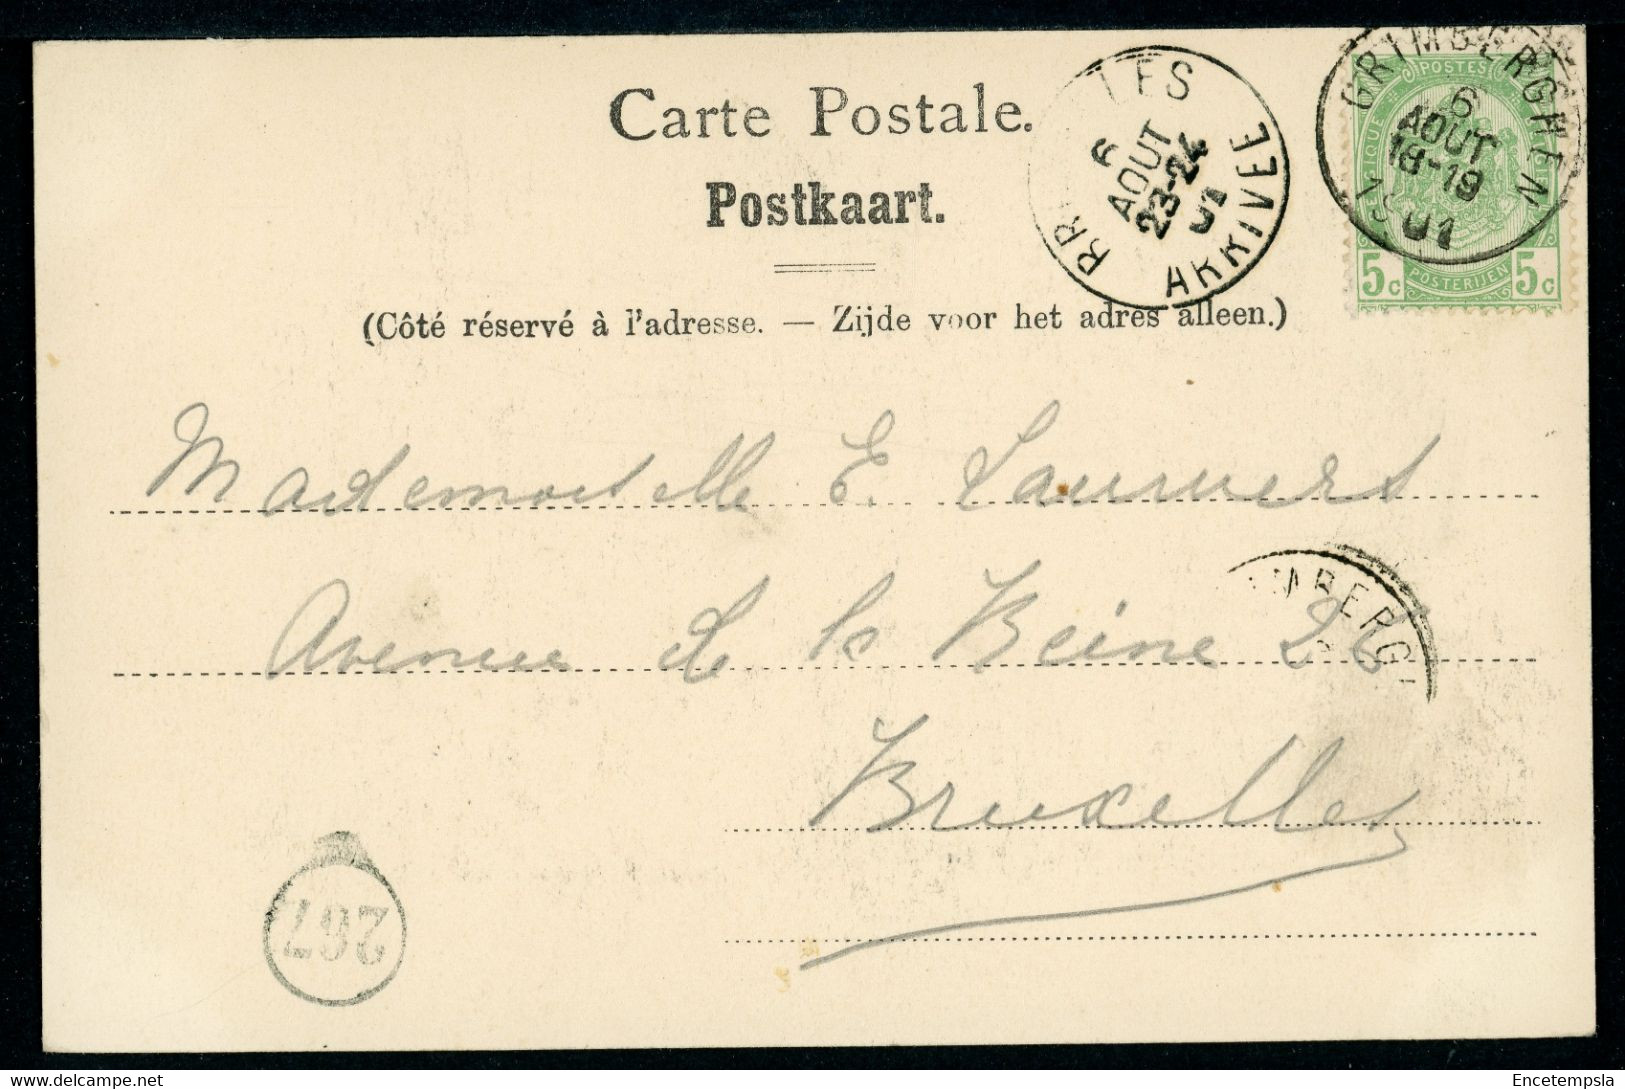 Carte Postale.
Postkaart.
(Côté réservé à l'adresse. — Zijde voor het adres alleen.)
LES
6
AOUT
23-24
01
ARRIVÉE
GRIMBERGHEN
6
AOUT
18-19
1901
POSTES
5c POSTERIJEN 5c
Mademoiselle E. Lauwers
Avenue de la Reine 26
MBERG
Bruxelles
267
Encetempsla